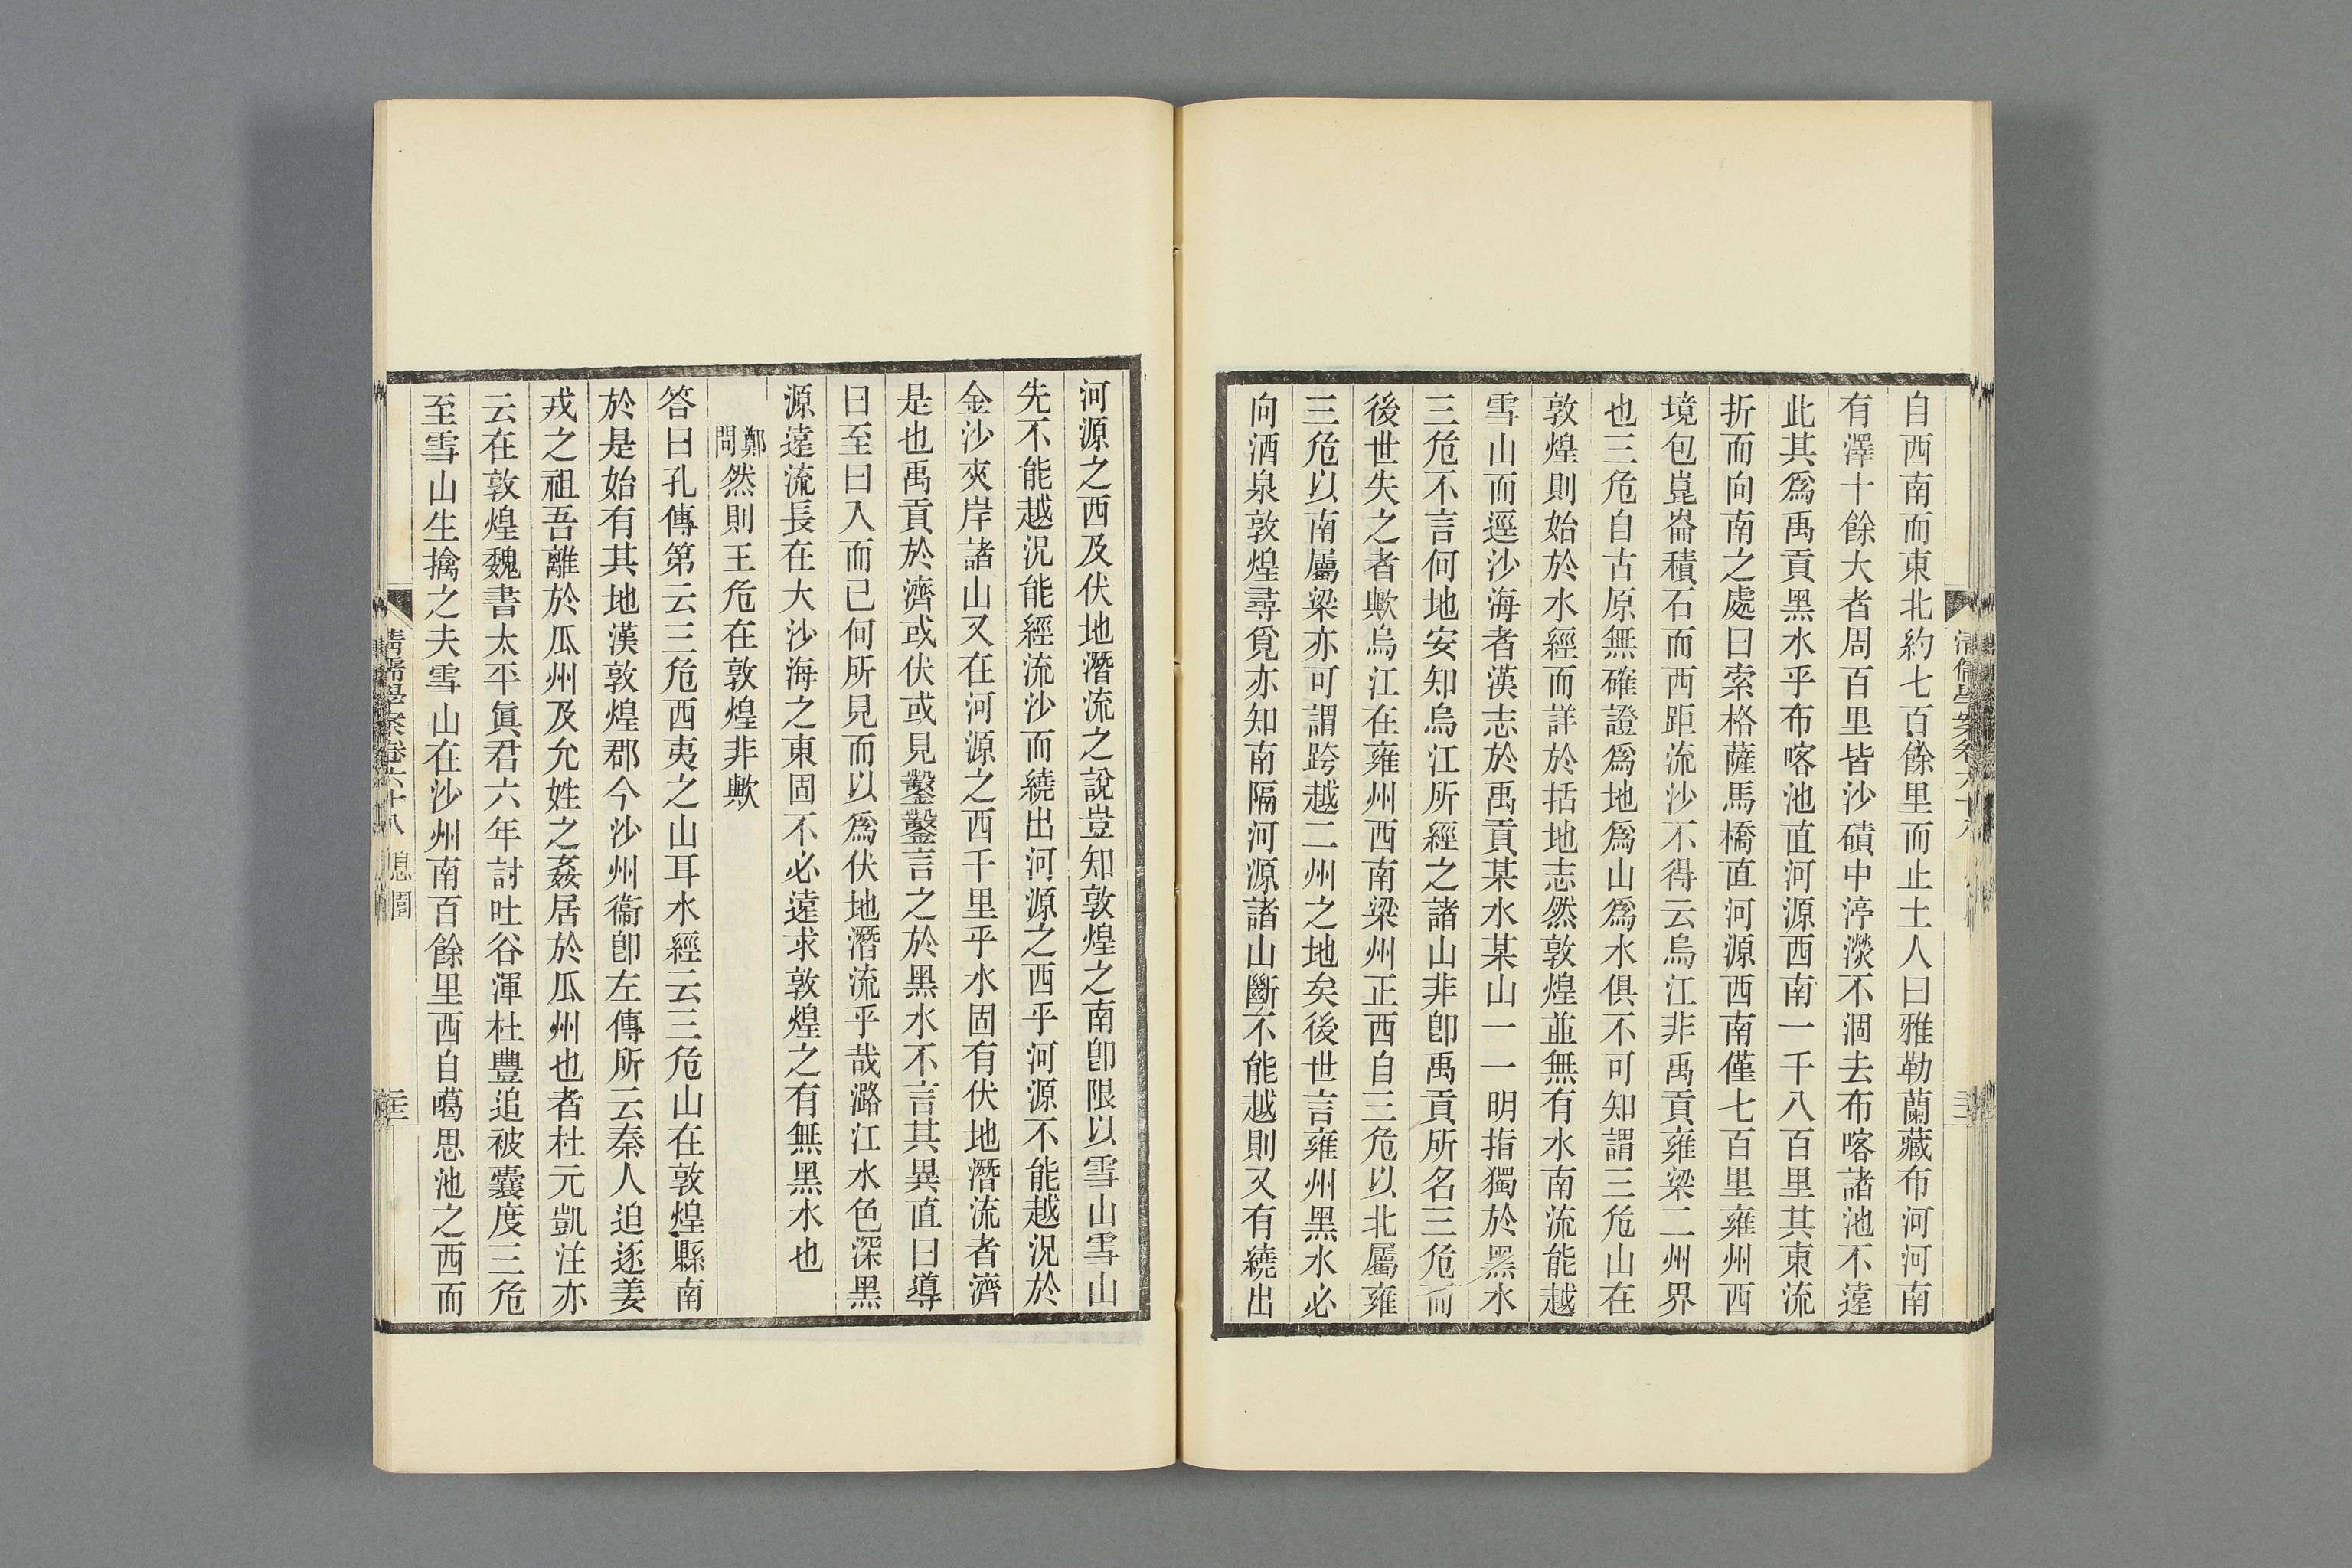 自西南而東北約七百餘里而止土人曰雅勒蘭藏布河河南
有澤十餘大者周百里皆沙磧中渟濙不涸去布喀諸池不遠
此其爲禹貢黑水乎布喀池直河源西南一千八百里其東流
折而向南之處曰索格薩馬橋直河源西南僅七百里雍州西
境包崑崙積石而西距流沙不得云烏江非禹貢雍梁二州界
也三危自古原無確證爲地爲山爲水俱不可知謂三危山在
敦煌則始於水經而詳於括地志然敦煌並無有水南流能越
雪山而逕沙海者漢志於禹貢某水某山一一明指獨於黑水
三危不言何地安知烏江所經之諸山非卽禹貢所名三危而
後世失之者歟烏江在雍州西南梁州正西自三危以北屬雍
三危以南屬梁亦可謂跨越二州之地矣後世言雍州黑水必
向酒泉敦煌尋覓亦知南隔河源諸山斷不能越則又有繞出
河源之西及伏地潛流之說豈知敦煌之南卽限以雪山雪山
先不能越況能經流沙而繞出河源之西乎河源不能越況於
金沙夾岸諸山又在河源之西千里乎水固有伏地潛流者濟
是也禹貢於濟或伏或見鑿鑿言之於黑水不言其異直曰導
曰至曰入而已何所見而以爲伏地潛流乎哉潞江水色深黑
源遠流長在大沙海之東固不必遠求敦煌之有無黑水也
鄭問然則王危在敦煌非歟
答曰孔傳第云三危西夷之山耳水經云三危山在敦煌縣南
於是始有其地漢敦煌郡今沙州衞卽左傳所云秦人迫逐姜
戎之祖吾離於瓜州及允姓之姦居於瓜州也者杜元凱注亦
云在敦煌魏書太平眞君六年討吐谷渾杜豐追被囊度三危
至雪山生擒之夫雪山在沙州南百餘里西自噶思池之西而
清儒學案卷六十八 息園